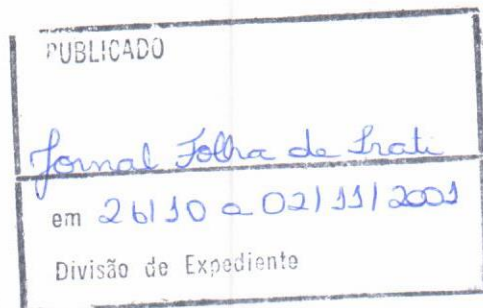 PUBLICADO
Jornal Folha de Irati
em 26/10 a 02/11/2001
Divisão de Expediente